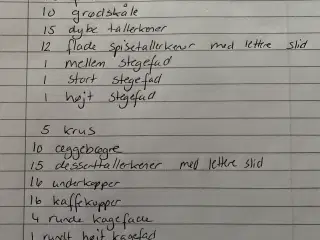 10 grødskåle
15 dybe tallerkener
12 flade spisetallerkener med lettere slid
1 mellem stegefad
1 stort stegefad
1 højt stegefad
5 krus
10 æggebægre
15 desserttallerkener med lettere slid
16 underkopper
16 kaffekopper
4 runde kagefade
1 rundt højt kagefad